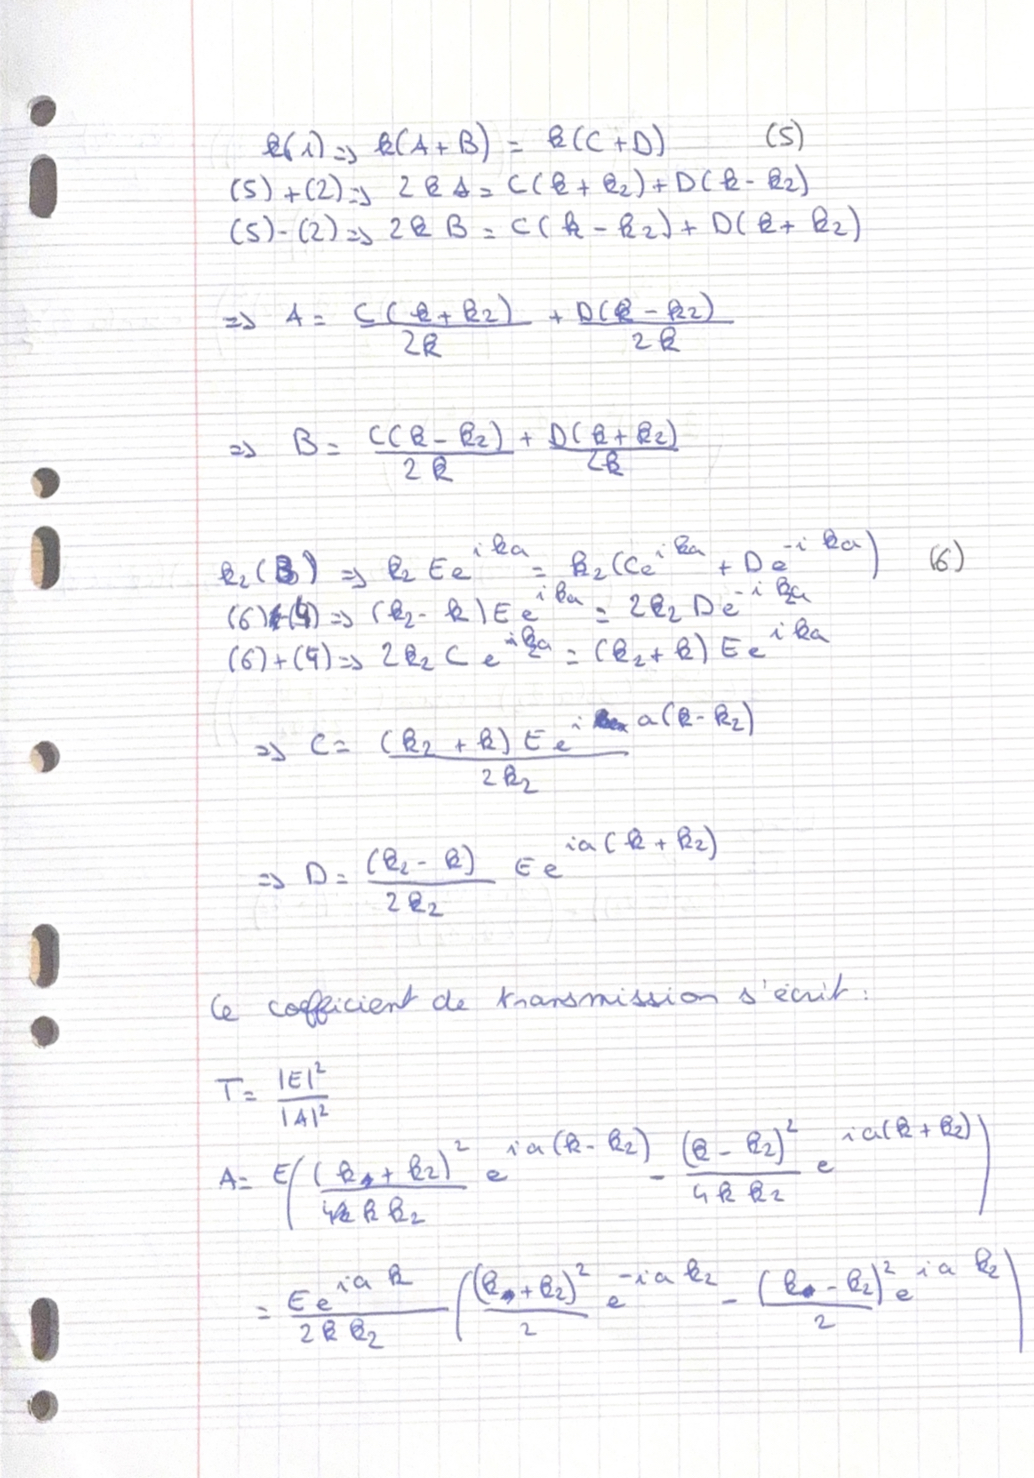 k(1) => k(A + B) = k(C + D) (5)
(5) + (2) => 2 k A = C(k + k₂) + D(k - k₂)
(5) - (2) => 2 k B = C(k - k₂) + D(k + k₂)
=> A = C(k + k₂)/2k + D(k - k₂)/2k
=> B = C(k - k₂)/2k + D(k + k₂)/2k
k₂(3) => k₂ E e^{ika} = k₂(C e^{ik₂a} + D e^{-ik₂a}) (6)
(6) - (4) => (k₂ - k) E e^{ika} = 2k₂ D e^{-ik₂a}
(6) + (4) => 2k₂ C e^{ik₂a} = (k₂ + k) E e^{ika}
=> C = (k₂ + k) E e^{i a(k - k₂)}/2k₂
=> D = (k₂ - k)/2k₂ E e^{ia(k + k₂)}
Le coefficient de transmission s'écrit :
T = |E|²/|A|²
A = E((k + k₂)²/4 k k₂ e^{ia(k - k₂)} - (k - k₂)²/4 k k₂ e^{ia(k + k₂)})
= E e^{iak}/2 k k₂ ((k + k₂)²/2 e^{-iak₂} - (k - k₂)²/2 e^{iak₂})